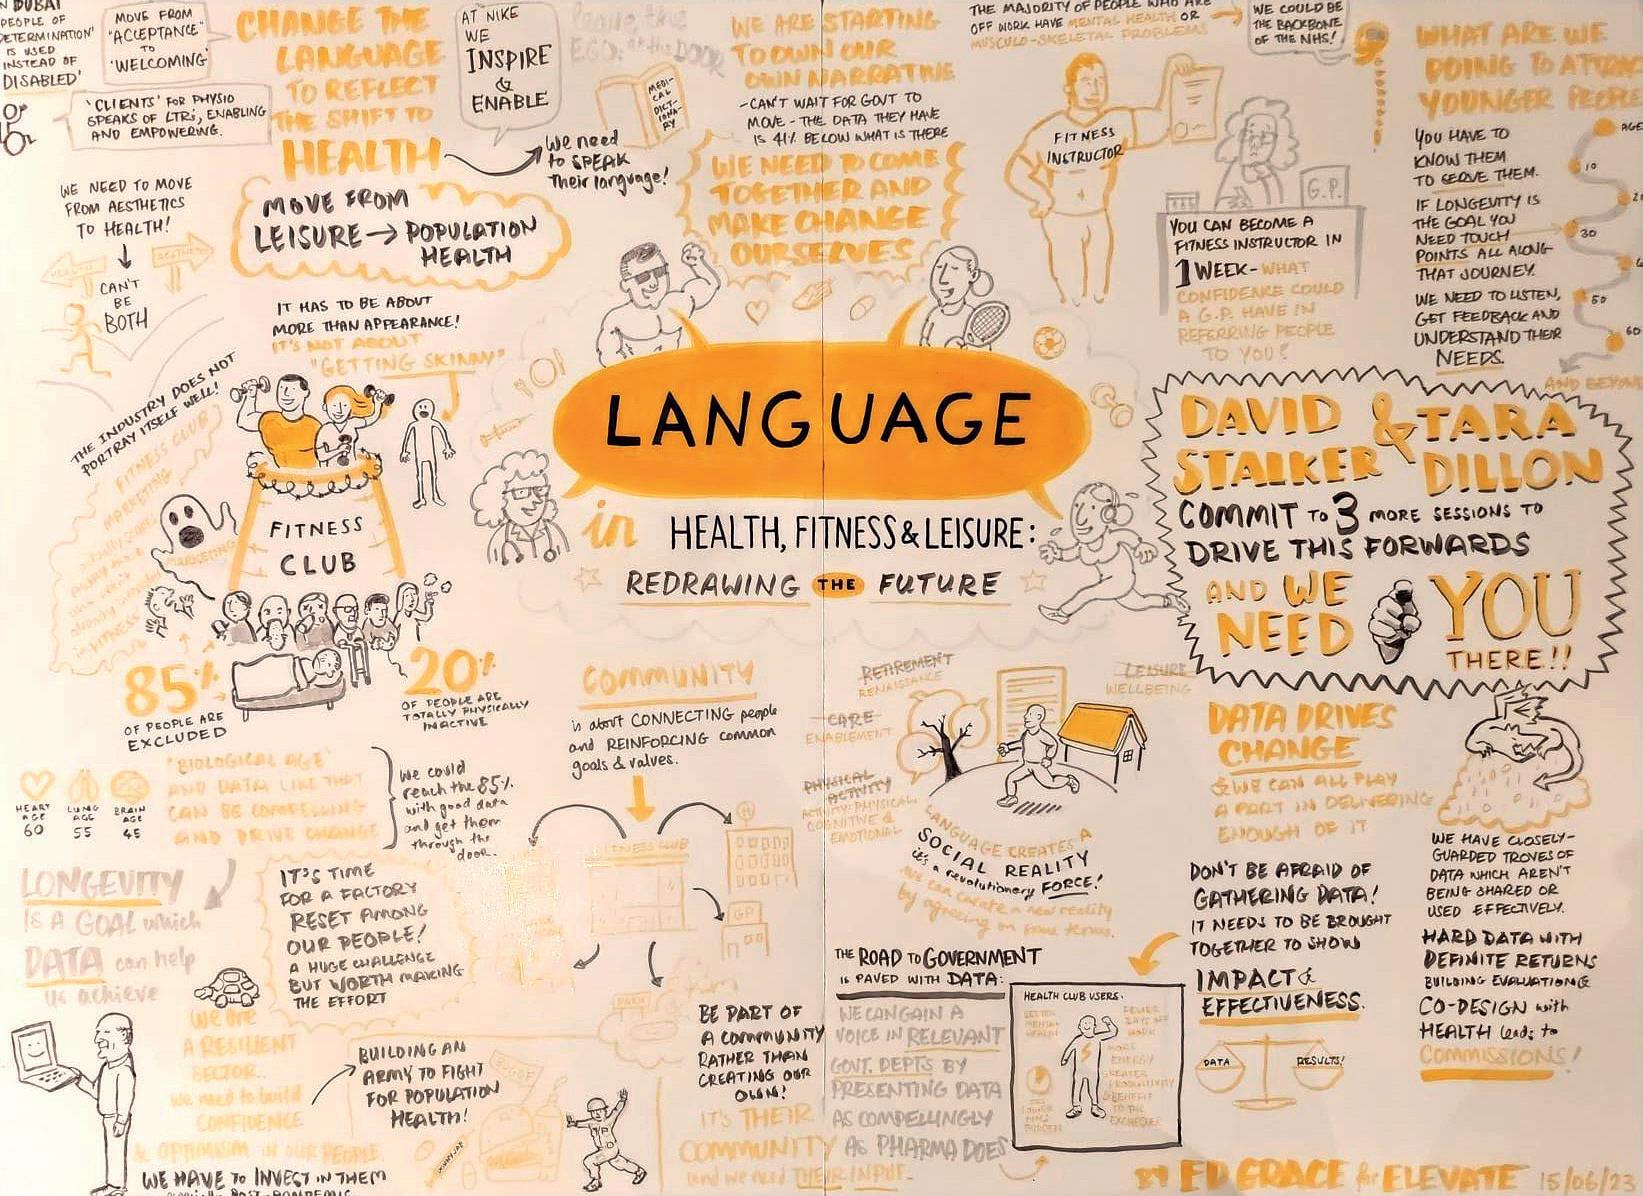 N DUBAI
PEOPLE OF
DETERMINATION'
IS USED
INSTEAD OF
DISABLED'
MOVE FROM
'ACCEPTANCE'
TO
'WELCOMING'
'CLIENTS' FOR PHYSIO
SPEAKS OF LTRs, ENABLING
AND EMPOWERING.
CHANGE THE
LANGUAGE
TO REFLECT
THE SHIFT TO
HEALTH
AT NIKE
WE
INSPIRE
&
ENABLE
leave the
EGO: at the DOOR
MEDI-
CAL
DICT-
IONA-
RY
We need
to SPEAK
their language!
WE ARE STARTING
TO OWN OUR
OWN NARRATIVE
- CAN'T WAIT FOR GOVT TO
MOVE - THE DATA THEY HAVE
IS 41% BELOW WHAT IS THERE
WE NEED TO COME
TOGETHER AND
MAKE CHANGE
OURSELVES
THE MAJORITY OF PEOPLE WHO ARE
OFF WORK HAVE MENTAL HEALTH OR
MUSCULO-SKELETAL PROBLEMS
WE COULD BE
THE BACKBONE
OF THE NHS!
FITNESS
INSTRUCTOR
G.P.
YOU CAN BECOME A
FITNESS INSTRUCTOR IN
1 WEEK - WHAT
CONFIDENCE COULD
A G.P. HAVE IN
REFERRING PEOPLE
TO YOU?
WHAT ARE WE
DOING TO ATTRACT
YOUNGER PEOPLE
YOU HAVE TO
KNOW THEM
TO SERVE THEM.
IF LONGEVITY IS
THE GOAL YOU
NEED TOUCH
POINTS ALL ALONG
THAT JOURNEY.
WE NEED TO LISTEN,
GET FEEDBACK AND
UNDERSTAND THEIR
NEEDS.
AGE
10
30
50
60
AND BEYOND
WE NEED TO MOVE
FROM AESTHETICS
TO HEALTH!
HEALTH
AESTHETICS
CAN'T
BE
BOTH
MOVE FROM
LEISURE → POPULATION
HEALTH
IT HAS TO BE ABOUT
MORE THAN APPEARANCE!
IT'S NOT ABOUT
"GETTING SKINNY"
THE INDUSTRY DOES NOT
PORTRAY ITSELF WELL!
FITNESS CLUB
MARKETING
FITNESS
CLUB
85%
OF PEOPLE ARE
EXCLUDED
20%
OF PEOPLE ARE
TOTALLY PHYSICALLY
INACTIVE
LANGUAGE
in HEALTH, FITNESS & LEISURE:
REDRAWING THE FUTURE
DAVID & TARA
STALKER DILLON
COMMIT TO 3 MORE SESSIONS TO
DRIVE THIS FORWARDS
AND WE
NEED YOU
THERE!!
HEART
AGE
60
LUNG
AGE
55
BRAIN
AGE
45
"BIOLOGICAL AGE"
AND DATA LIKE THAT
CAN BE COMPELLING
AND DRIVE CHANGE
We could
reach the 85%
with good data
and get them
through the
door.
COMMUNITY
is about CONNECTING people
and REINFORCING common
goals & values.
FITNESS CLUB
GP
PARK
RETIREMENT
RENAISSANCE
CARE
ENABLEMENT
PHYSICAL
ACTIVITY
ACTIVITY: PHYSICAL
COGNITIVE &
EMOTIONAL
LEISURE
WELLBEING
LANGUAGE CREATES A
SOCIAL REALITY
it's a revolutionary FORCE!
We can create a new reality
by agreeing on some terms.
DATA DRIVES
CHANGE
& WE CAN ALL PLAY
A PART IN DELIVERING
ENOUGH OF IT
WE HAVE CLOSELY-
GUARDED TROVES OF
DATA WHICH AREN'T
BEING SHARED OR
USED EFFECTIVELY.
HARD DATA WITH
DEFINITE RETURNS
BUILDING EVALUATION &
CO-DESIGN with
HEALTH leads to
COMMISSIONS!
DON'T BE AFRAID OF
GATHERING DATA!
IT NEEDS TO BE BROUGHT
TOGETHER TO SHOW
IMPACT &
EFFECTIVENESS.
DATA
RESULTS!
LONGEVITY
IS A GOAL which
DATA can help
us achieve
IT'S TIME
FOR A FACTORY
RESET AMONG
OUR PEOPLE!
A HUGE CHALLENGE
BUT WORTH MAKING
THE EFFORT
WE ARE
A RESILIENT
SECTOR..
We need to build
CONFIDENCE
& OPTIMISM IN OUR PEOPLE.
WE HAVE TO INVEST IN THEM
BUILDING AN
ARMY TO FIGHT
FOR POPULATION
HEALTH!
BE PART OF
A COMMUNITY
RATHER THAN
CREATING OUR
OWN!
IT'S THEIR
COMMUNITY
and we need THEIR INPUT.
THE ROAD TO GOVERNMENT
IS PAVED WITH DATA:
WE CAN GAIN A
VOICE IN RELEVANT
GOVT. DEPTS BY
PRESENTING DATA
AS COMPELLINGLY
AS PHARMA DOES
HEALTH CLUB USERS:
BETTER
MENTAL
HEALTH
FEWER
DAYS OFF
WORK
MORE
ENERGY
GREATER
PRODUCTIVITY
BENEFIT
TO THE
EXCHEQUER
BY ED GRACE for ELEVATE 15/06/23